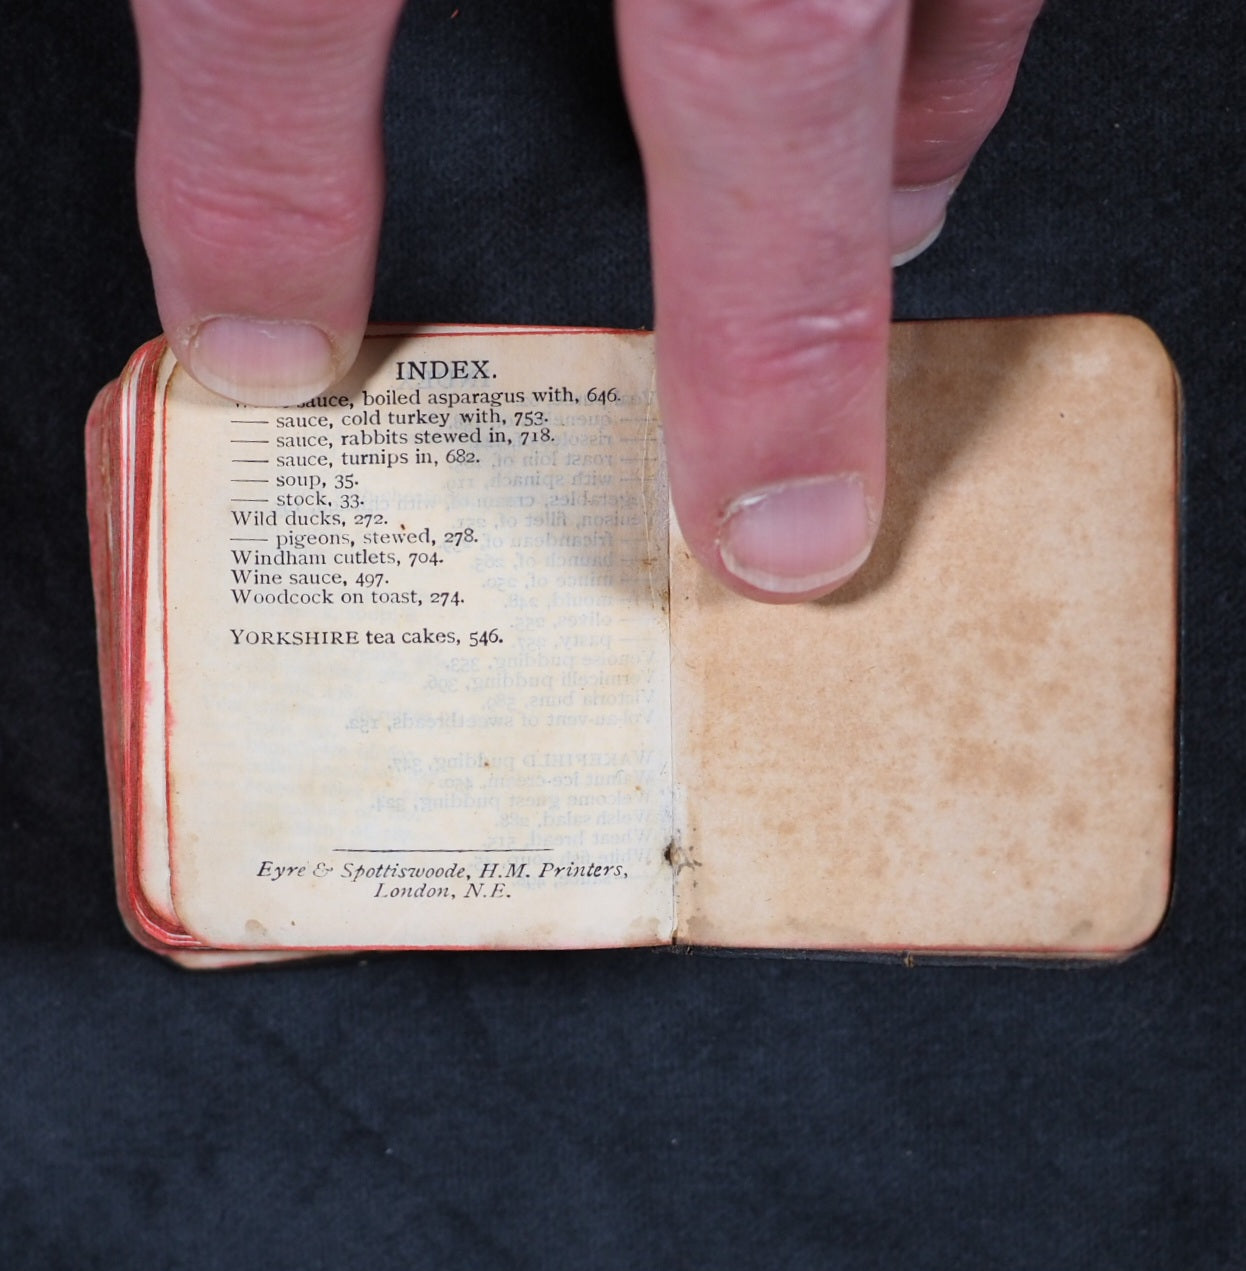 INDEX.
sauce, boiled asparagus with, 646.
—— sauce, cold turkey with, 753.
—— sauce, rabbits stewed in, 718.
—— sauce, turnips in, 682.
—— soup, 35.
—— stock, 33.
Wild ducks, 272.
—— pigeons, stewed, 278.
Windham cutlets, 704.
Wine sauce, 497.
Woodcock on toast, 274.
YORKSHIRE tea cakes, 546.
Eyre & Spottiswoode, H.M. Printers,
London, N.E.